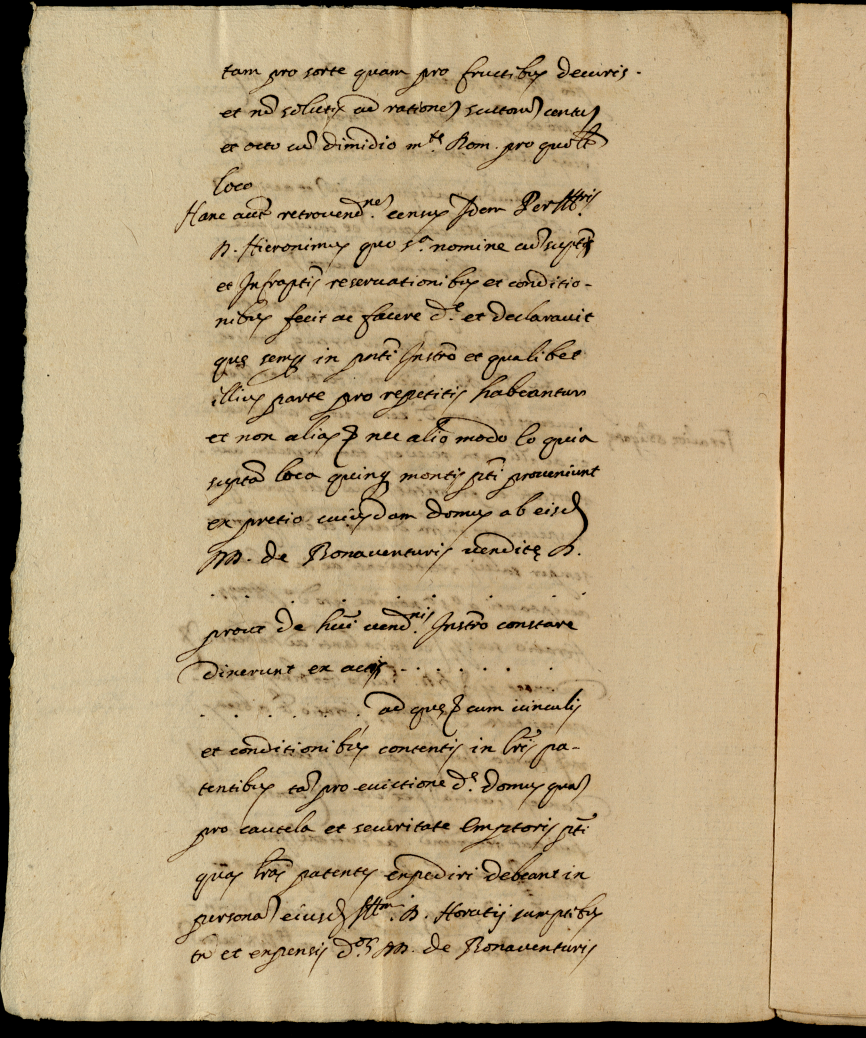 tam pro sorte quam pro fructibus decuris.
et nō solutis ad rationē scutorū centū
et octo cū dimidio mte Rom. pro quolt
loco
Hanc aut retrovendne census Idem Perilltris
D. Hieronimus quo sa nomine cū supttis
et Infraptis reservationibus et conditio-
nibus fecit ac facere de et declaravit
quę semp in pnti Instro et qualibet
illius parte pro repetitis habeantur
et non alias & nec alio modo eo quia
supta loca quinq montis pti proveniunt
ex pretio cuiusdam domus ab eisd
DD. de Bonaventuris venditę D.
. . . . . . . .
prout de hui vendnis Instro constare
dixerunt ex actis . . . . . .
. . . . . . ad quę & cum vinculis
et conditionibus contentis in lris pa-
tentibus tā pro evictione de domus quā
pro cautela et securitate Emptoris pti
quas lras patentes expediri debeant in
personā eiusd Illm. D. Horatij sumptibus
tn et expensis dor DD. de Bonaventuris